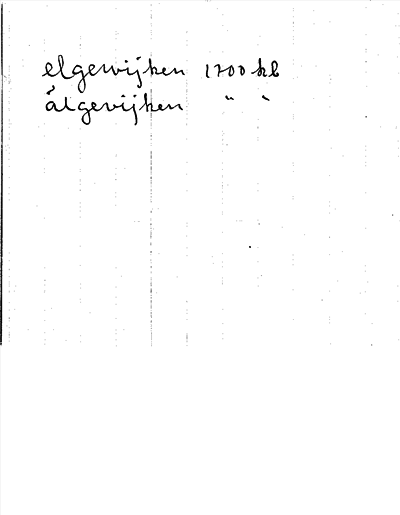 elgewijken 1700 kb
ålgevijken " "